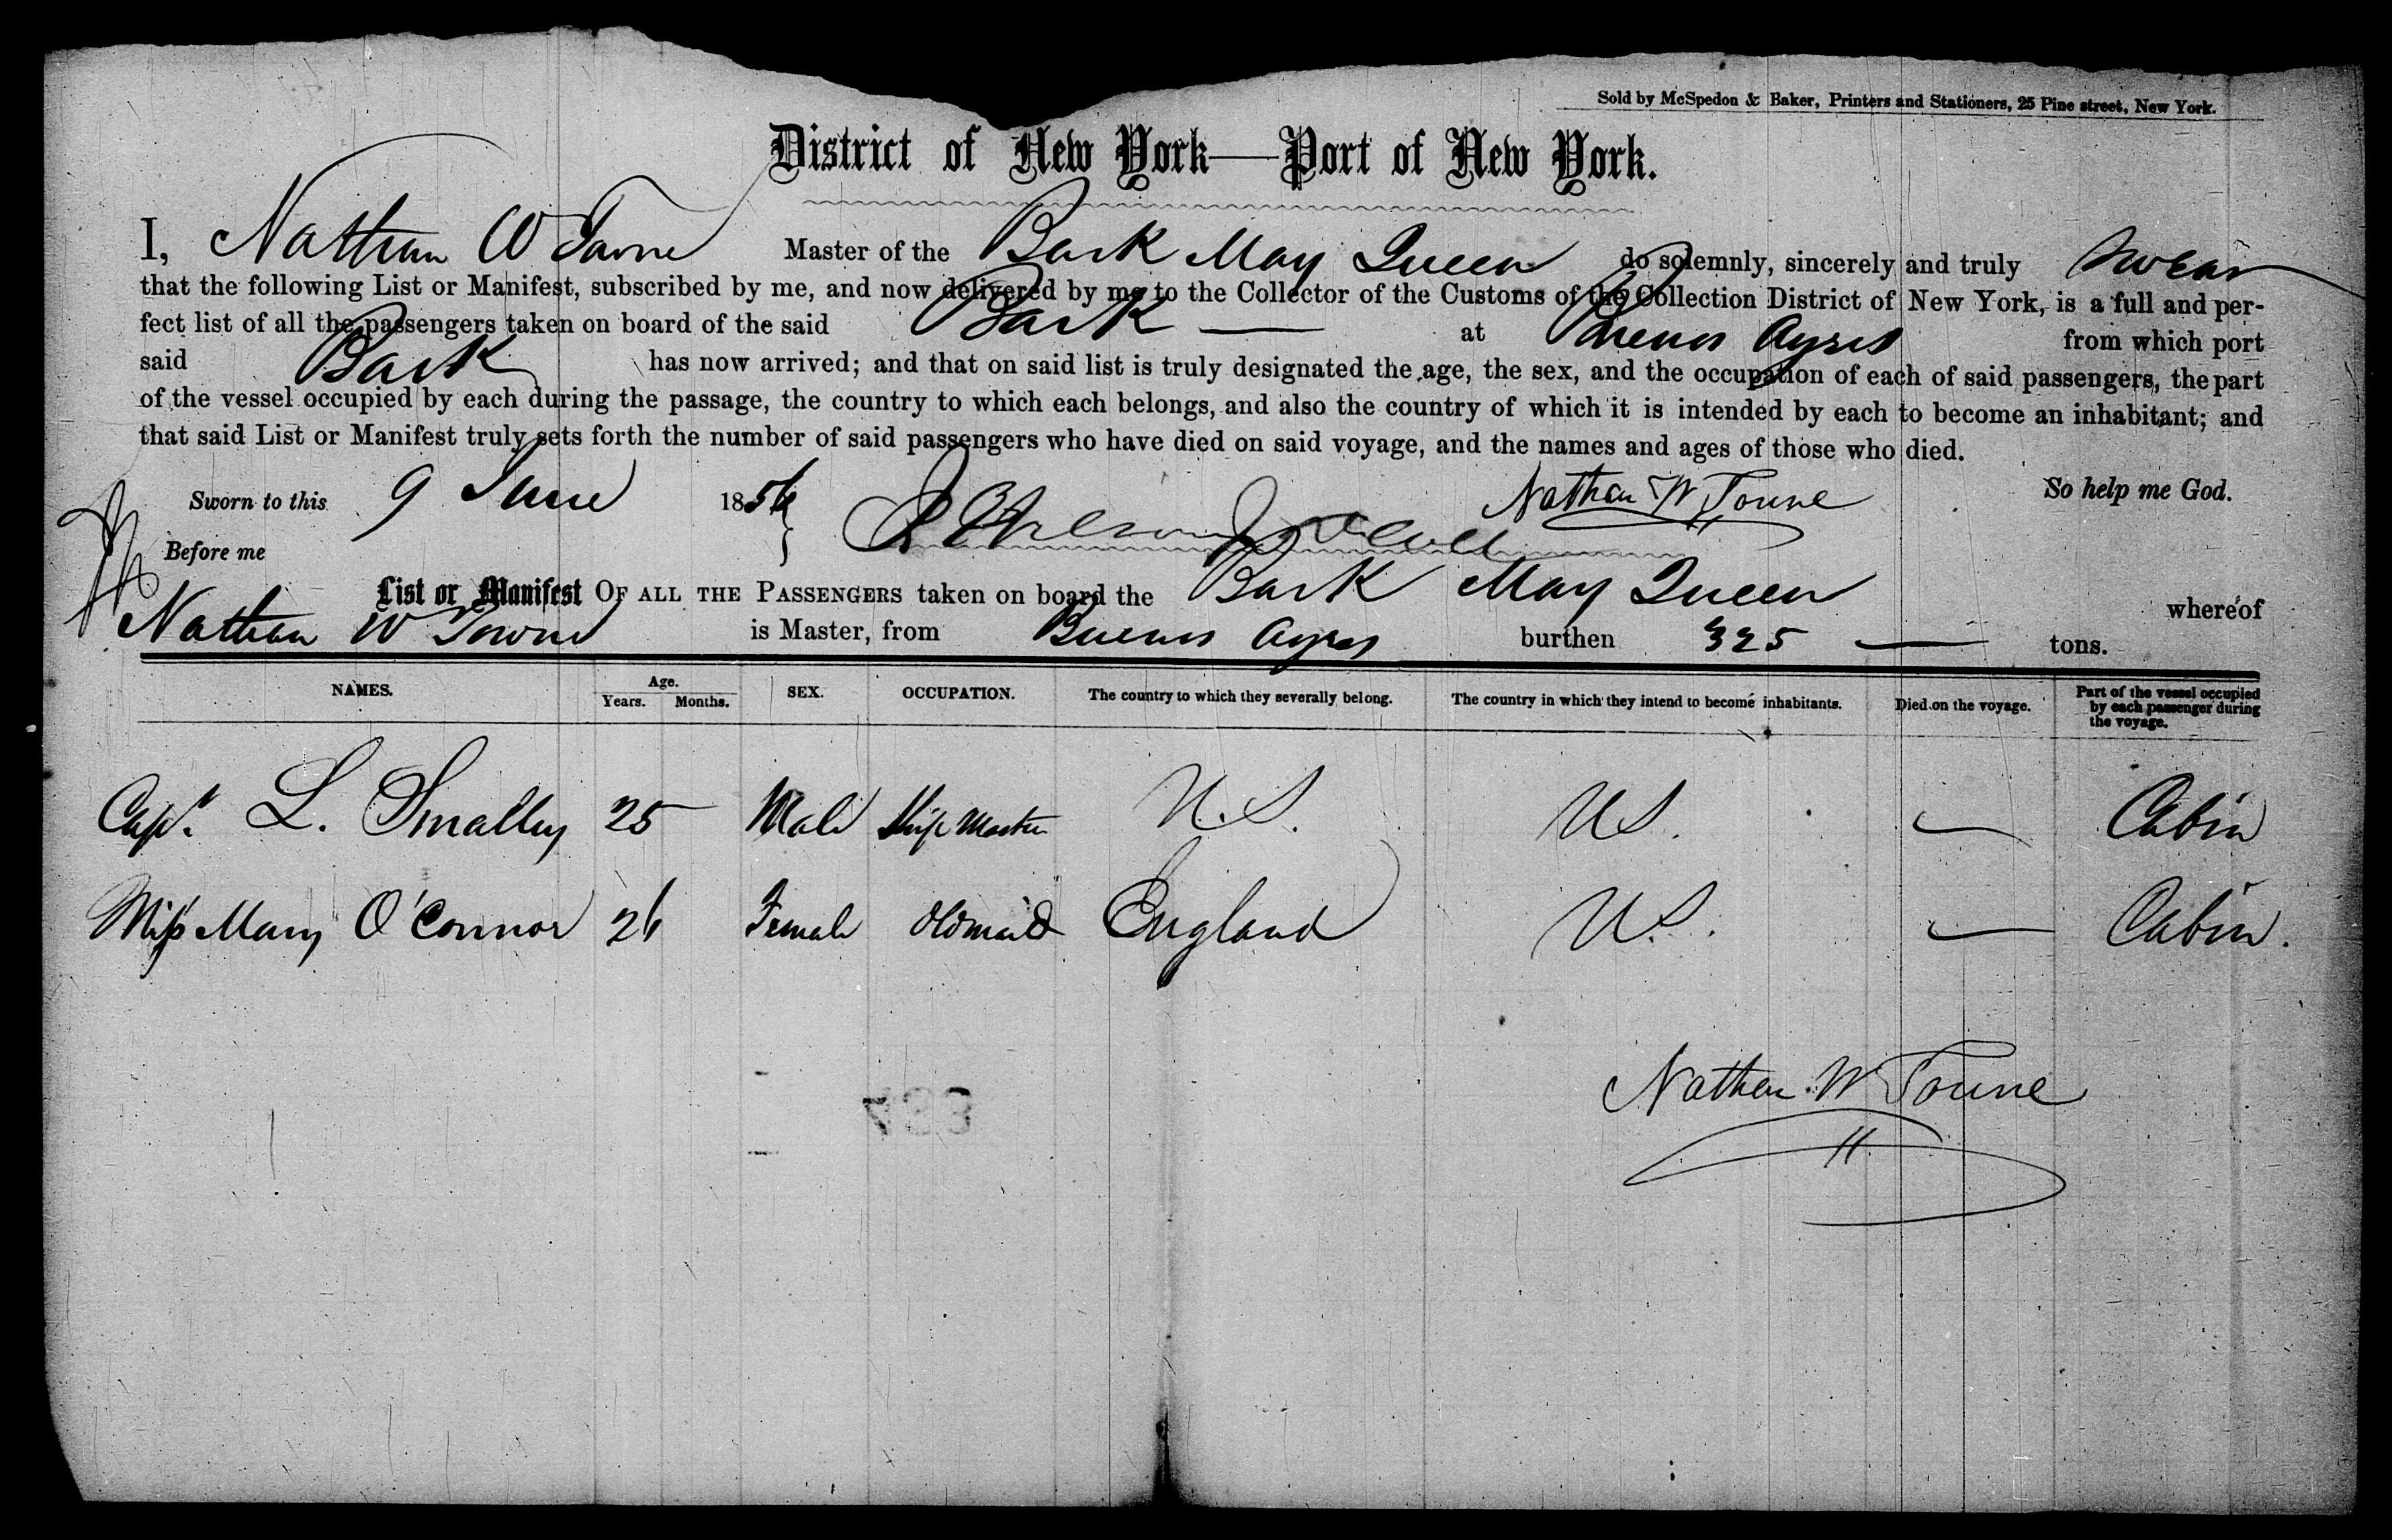 Sold by McSpedon & Baker, Printers and Stationers, 25 Pine street, New York.
District of New York—Port of New York.
I, Nathan W Towne Master of the Bark May Queen do solemnly, sincerely and truly swear
that the following List or Manifest, subscribed by me, and now delivered by me to the Collector of the Customs of the Collection District of New York, is a full and per-
fect list of all the passengers taken on board of the said Bark — at Buenos Ayres from which port
said Bark has now arrived; and that on said list is truly designated the age, the sex, and the occupation of each of said passengers, the part
of the vessel occupied by each during the passage, the country to which each belongs, and also the country of which it is intended by each to become an inhabitant; and
that said List or Manifest truly sets forth the number of said passengers who have died on said voyage, and the names and ages of those who died.
Sworn to this 9 June 1856 Nathan W Towne So help me God.
Before me
List or Manifest OF ALL THE PASSENGERS taken on board the Bark May Queen whereof
Nathan W Towne is Master, from Buenos Ayres burthen 325 — tons.
NAMES. Age. Years. Months. SEX. OCCUPATION. The country to which they severally belong. The country in which they intend to become inhabitants. Died on the voyage. Part of the vessel occupied by each passenger during the voyage.
Capt. L. Smalley 25 Male Ship Master U.S. U.S. — Cabin
Miss Mary O'Connor 26 Female Old maid England U.S. — Cabin.
Nathan W Towne